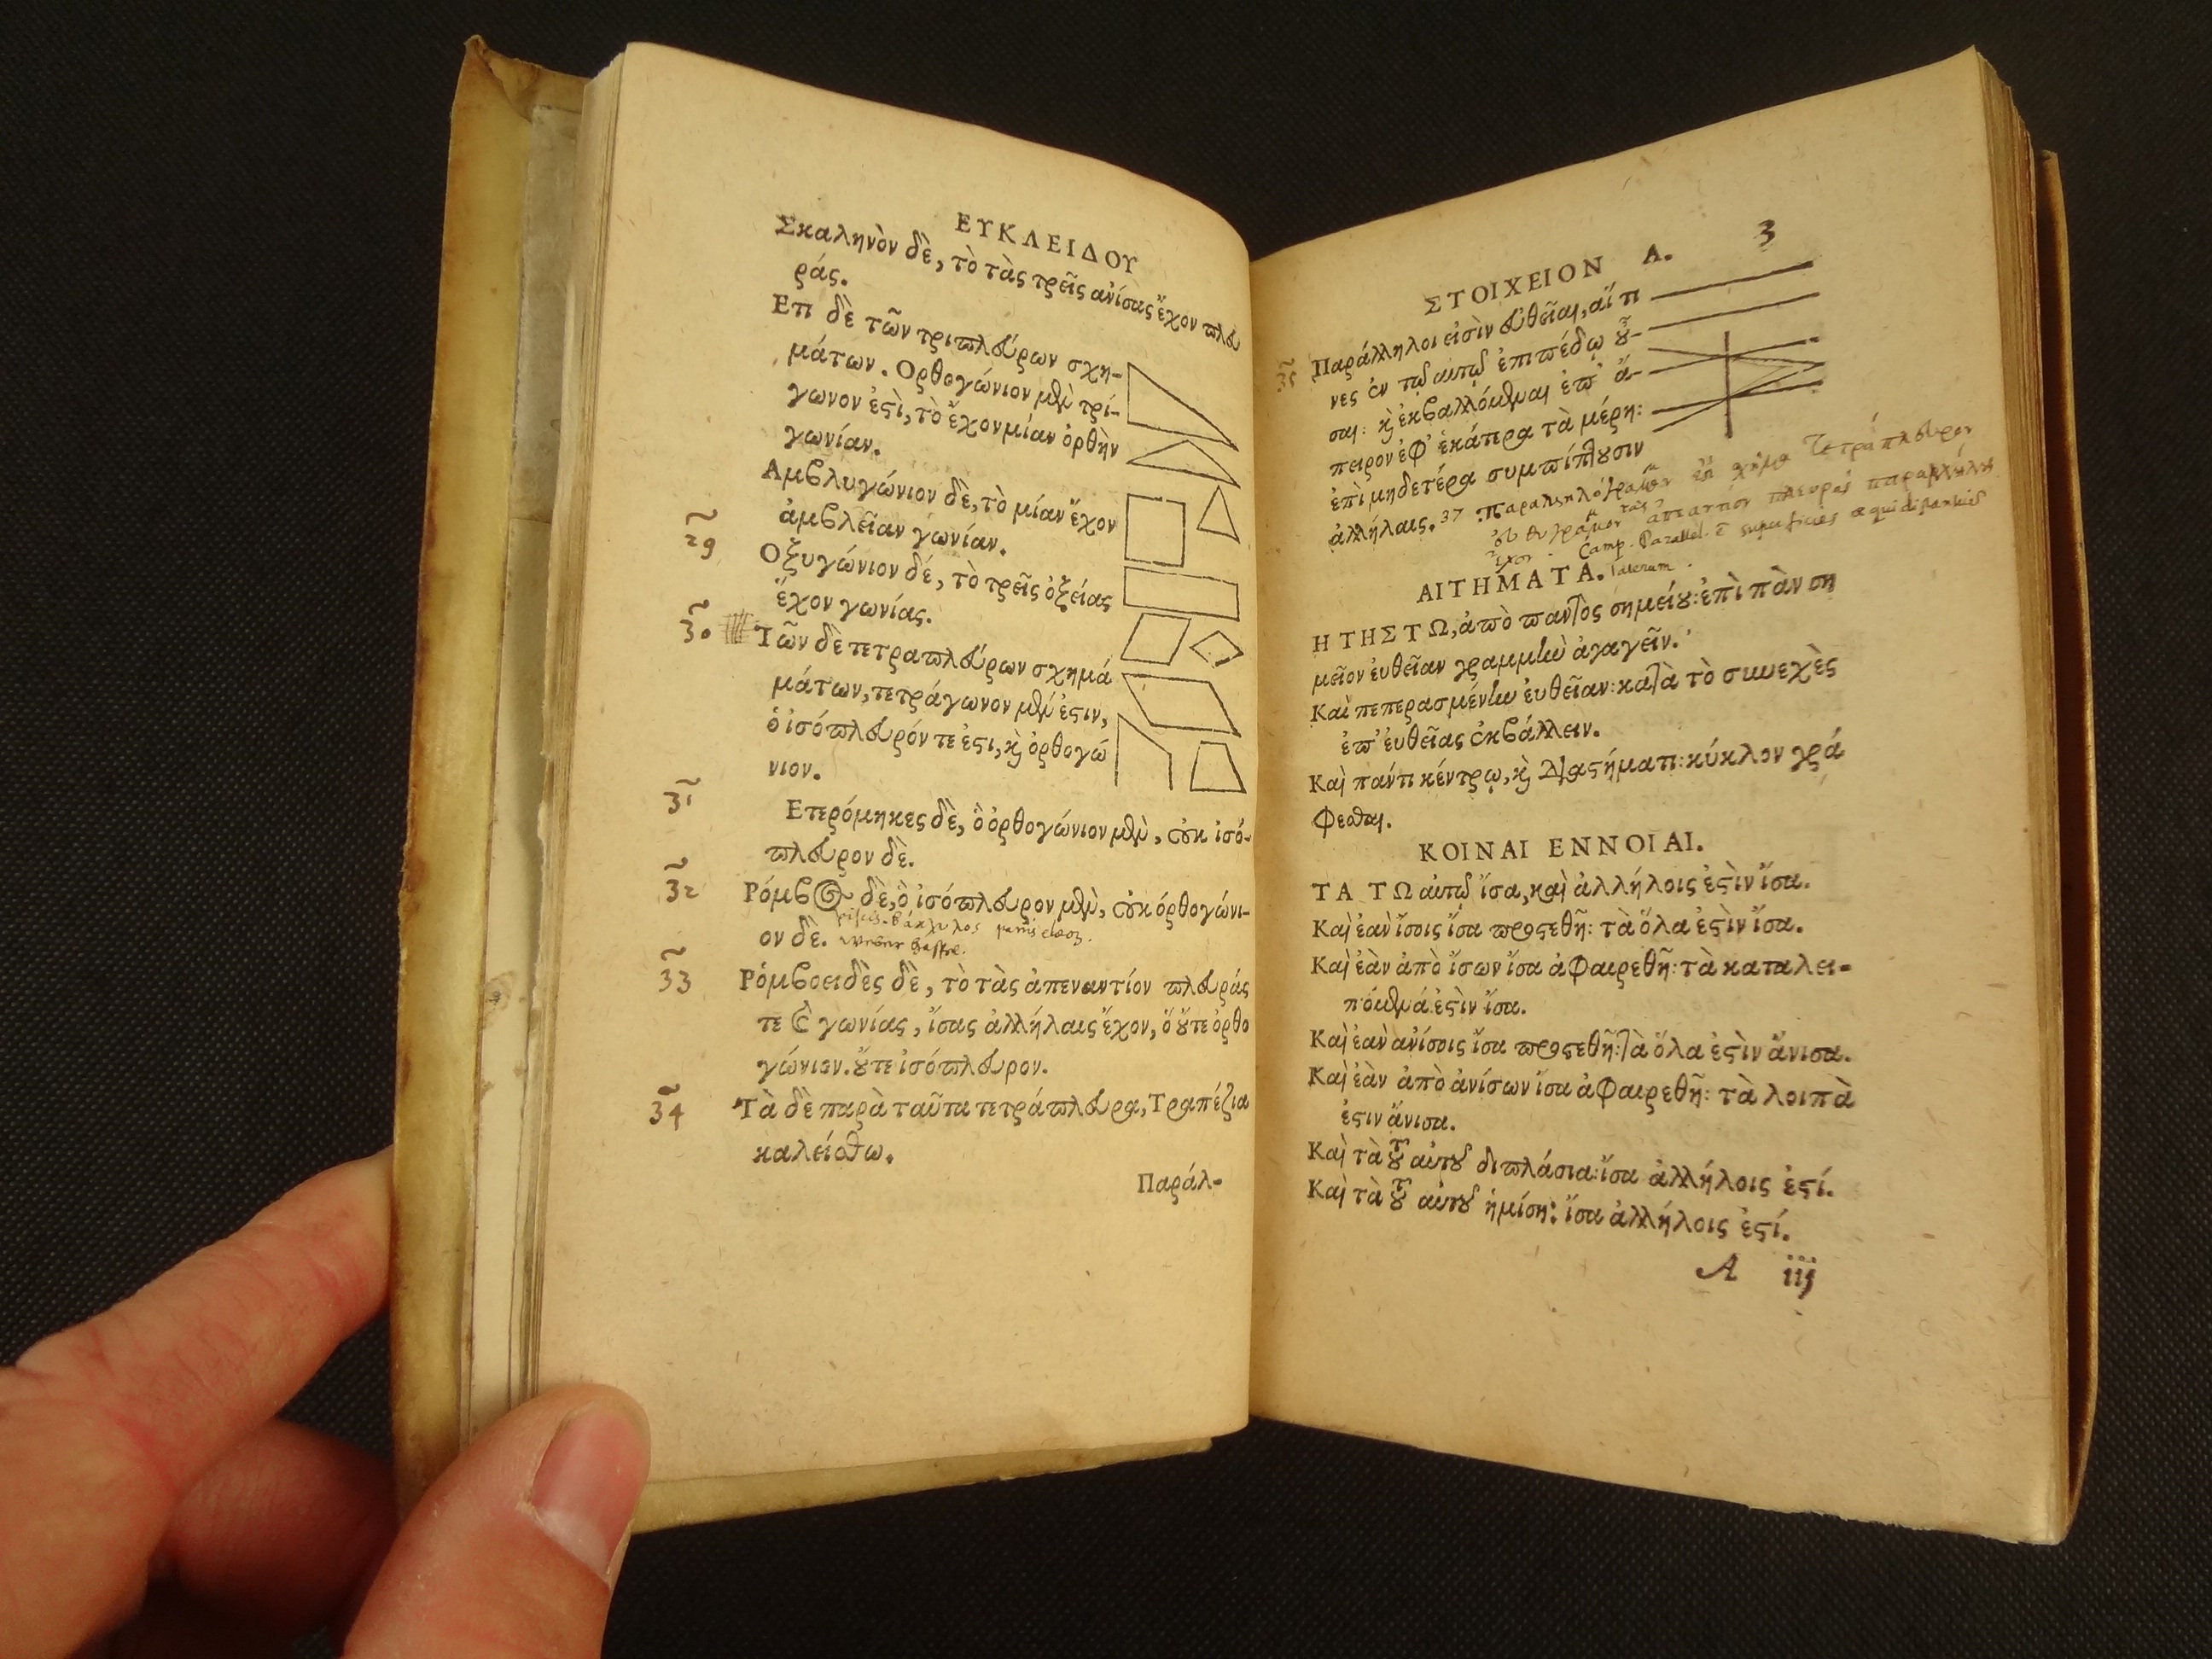 ΕΥΚΛΕΙΔΟΥ
Σκαληνὸν δὲ, τὸ τὰς τρεῖς ἀνίσας ἔχον πλευ
ράς.
Επι δὲ τῶν τριπλεύρων σχη-
μάτων. Ορθογώνιον μὲν τρί-
γωνον ἐστὶ, τὸ ἔχον μίαν ὀρθὴν
γωνίαν.
Αμβλυγώνιον δὲ, τὸ μίαν ἔχον
ἀμβλεῖαν γωνίαν.
29 Οξυγώνιον δέ, τὸ τρεῖς ὀξείας
ἔχον γωνίας.
30 Τῶν δὲ τετραπλεύρων σχημά
μάτων, τετράγωνον μέν ἐστιν,
ὃ ἰσόπλευρόν τε ἐστι, καὶ ὀρθογώ
νιον.
31 Ετερόμηκες δὲ, ὃ ὀρθογώνιον μὲν, οὐκ ἰσό-
πλευρον δὲ.
32 Ρόμβος δὲ, ὃ ἰσόπλευρον μὲν, οὐκ ὀρθογώνι-
ον δὲ.
33 Ρόμβοειδὲς δὲ, τὸ τὰς ἀπεναντίον πλευράς
τε καὶ γωνίας, ἴσας ἀλλήλαις ἔχον, ὃ οὔτε ὀρθο
γώνιον. οὔτε ἰσόπλευρον.
34 Τὰ δὲ παρὰ ταῦτα τετράπλευρα, Τραπέζια
καλείσθω.
Παράλ-
ΣΤΟΙΧΕΙΟΝ Α. 3
35 Παράλληλοι εἰσὶν εὐθεῖαι, αἵ τι
νες ἐν τῷ αὐτῷ ἐπιπέδῳ οὖ-
σαι: καὶ ἐκβαλλόμεναι ἐπ' ἄ-
πειρον ἐφ' ἑκάτερα τὰ μέρη:
ἐπὶ μηδετέρα συμπίπτουσιν
ἀλλήλαις. 37 παραλληλόγραμμον ἐστι σχῆμα τετράπλευρον
εὐθύγραμμον τὰς ἀπεναντίον πλευρὰς παραλλήλους
ἔχον. Camp. Parallel. ē superficies aequidistantiū
laterum.
ΑΙΤΗΜΑΤΑ.
ΗΤΗΣΤΩ, ἀπὸ παντὸς σημείου: ἐπὶ πᾶν ση
μεῖον ἐυθεῖαν γραμμὴν ἀγαγεῖν.
Καὶ πεπερασμένην ἐυθεῖαν: κατὰ τὸ συνεχὲς
ἐπ' ἐυθείας ἐκβάλλειν.
Καὶ παντὶ κέντρῳ, καὶ διαστήματι: κύκλον γρά
φεσθαι.
ΚΟΙΝΑΙ ΕΝΝΟΙΑΙ.
ΤΑ ΤΩ αὐτῷ ἴσα, καὶ ἀλλήλοις ἐστὶν ἴσα.
Καὶ ἐὰν ἴσοις ἴσα προστεθῇ: τὰ ὅλα ἐστὶν ἴσα.
Καὶ ἐὰν ἀπὸ ἴσων ἴσα ἀφαιρεθῇ: τὰ καταλει-
πόμενά ἐστὶν ἴσα.
Καὶ ἐὰν ἀνίσοις ἴσα προστεθῇ: τὰ ὅλα ἐστὶν ἄνισα.
Καὶ ἐὰν ἀπὸ ἀνίσων ἴσα ἀφαιρεθῇ: τὰ λοιπὰ
ἐστιν ἄνισα.
Καὶ τὰ τοῦ αὐτοῦ διπλάσια: ἴσα ἀλλήλοις ἐστί.
Καὶ τὰ τοῦ αὐτοῦ ἡμίση: ἴσα ἀλλήλοις ἐστί.
A iij